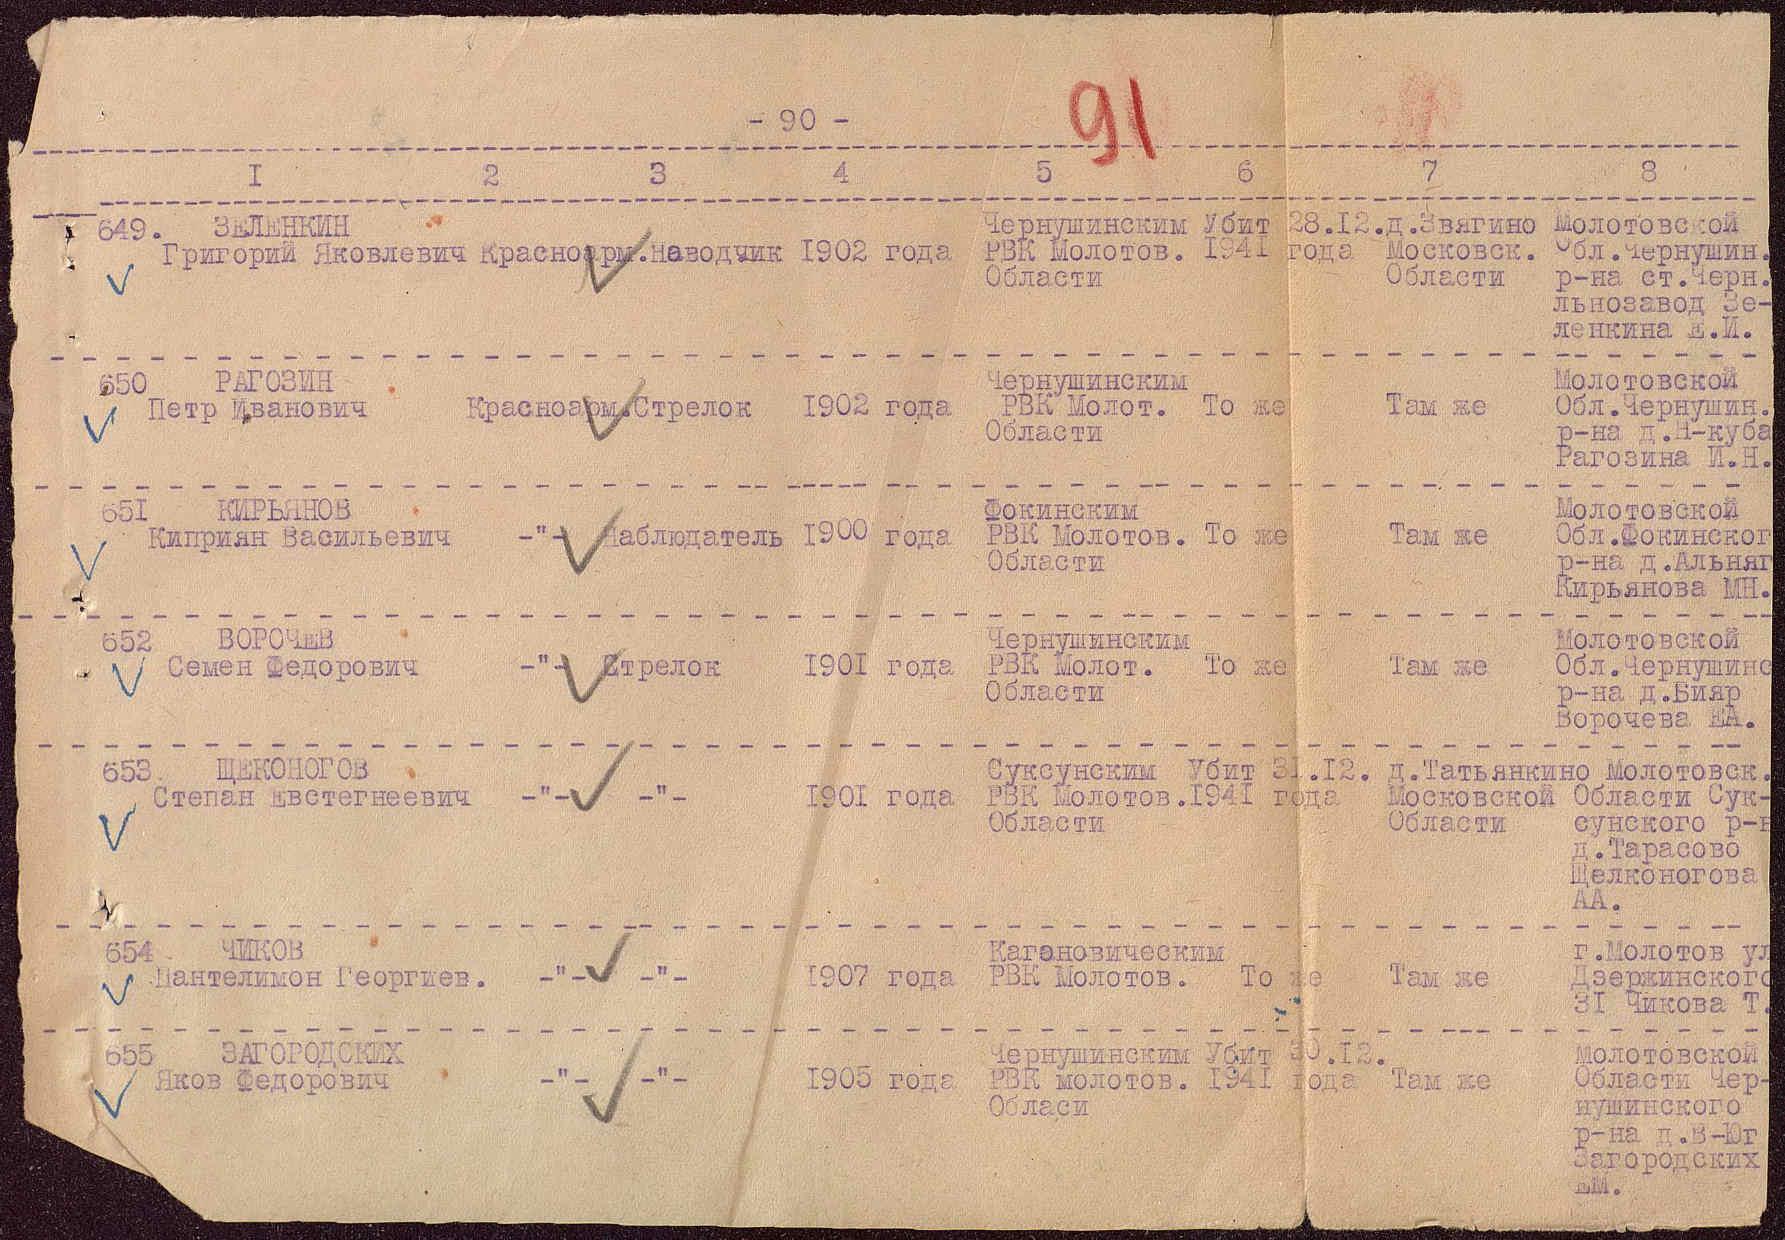 - 90 -
91
I 2 3 4 5 6 7 8
649. ЗЕЛЕНКИН Чернушинским Убит 28.12. д.Звягино Молотовской
Григорий Яковлевич Красноарм. Наводчик I902 года РВК Молотов. I94I года Московск. Обл.Чернушин.
Области Области р-на ст.Черн.
льнозавод Зе-
ленкина Е.И.
650 РАГОЗИН Чернушинским Молотовской
Петр Иванович Красноарм.Стрелок I902 года РВК Молот. То же Там же Обл.Чернушин.
Области р-на д.Н-куба
Рагозина И.Н.
65I КИРЬЯНОВ Фокинским Молотовской
Киприян Васильевич -"- Наблюдатель I900 года РВК Молотов. То же Там же Обл.Фокинског
Области р-на д.Альняг
Кирьянова МН.
652 ВОРОЧЕВ Чернушинским Молотовской
Семен Федорович -"- Стрелок I90I года РВК Молот. То же Там же Обл.Чернушинс
Области р-на д.Бияр
Ворочева ЕА.
653 ЩЕКОНОГОВ Суксунским Убит 3I.I2. д.Татьянкино Молотовск.
Степан Евстегнеевич -"- -"- I90I года РВК Молотов.I94I года Московской Области Сук-
Области Области сунского р-н
д.Тарасово
Щелконогова
АА.
654 ЧИКОВ Кагановическим г.Молотов ул
Пантелимон Георгиев. -"- -"- I907 года РВК Молотов. То же Там же Дзержинского
3I Чикова Т.
655 ЗАГОРОДСКИХ Чернушинским Убит 30.I2. Молотовской
Яков Федорович -"- -"- I905 года РВК молотов. I94I года Там же Области Чер-
Обласи нушинского
р-на д.В-Юг
Загородских
ЕМ.